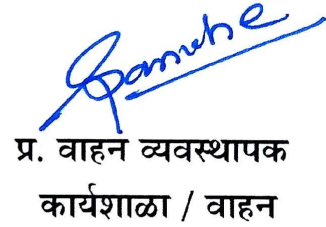 प्र. वाहन व्यवस्थापक
कार्यशाळा / वाहन